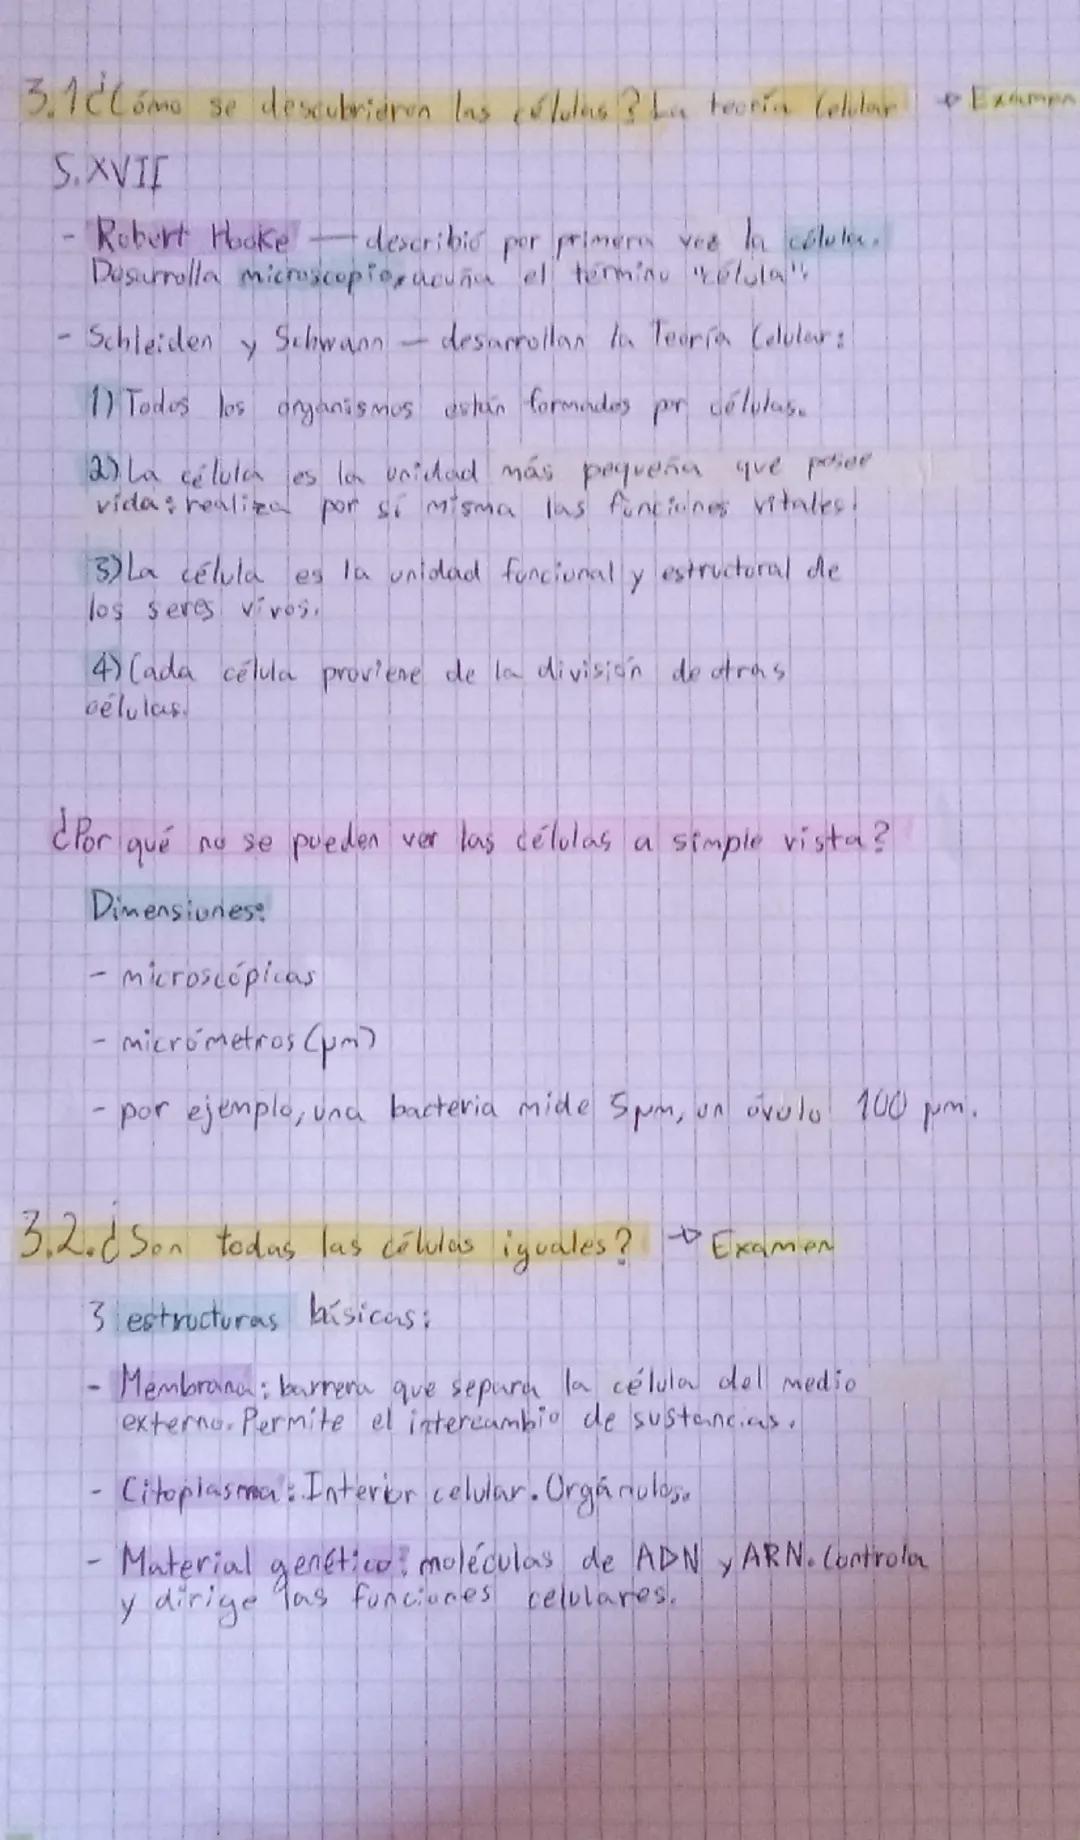 3.1 ¿Cómo se descubrieron las células? La teoría Celular → Examen
S.XVII
- Robert Hooke — describió por primera vez la célula.
Desarrolla microscopio, acuña el término "célula".
- Schleiden y Schwann — desarrollan la Teoría Celular:
1) Todos los organismos están formados por células.
2) La célula es la unidad más pequeña que posee
vida: realiza por sí misma las funciones vitales.
3) La célula es la unidad funcional y estructural de
los seres vivos.
4) Cada célula proviene de la división de otras
células.
¿Por qué no se pueden ver las células a simple vista?
Dimensiones:
- microscópicas
- micrómetros (µm)
- por ejemplo, una bacteria mide 5µm, un óvulo 100 µm.
3.2. ¿Son todas las células iguales? → Examen
3 estructuras básicas:
- Membrana: barrera que separa la célula del medio
externo. Permite el intercambio de sustancias.
- Citoplasma: Interior celular. Orgánulos.
- Material genético: moléculas de ADN y ARN. Controla
y dirige las funciones celulares.